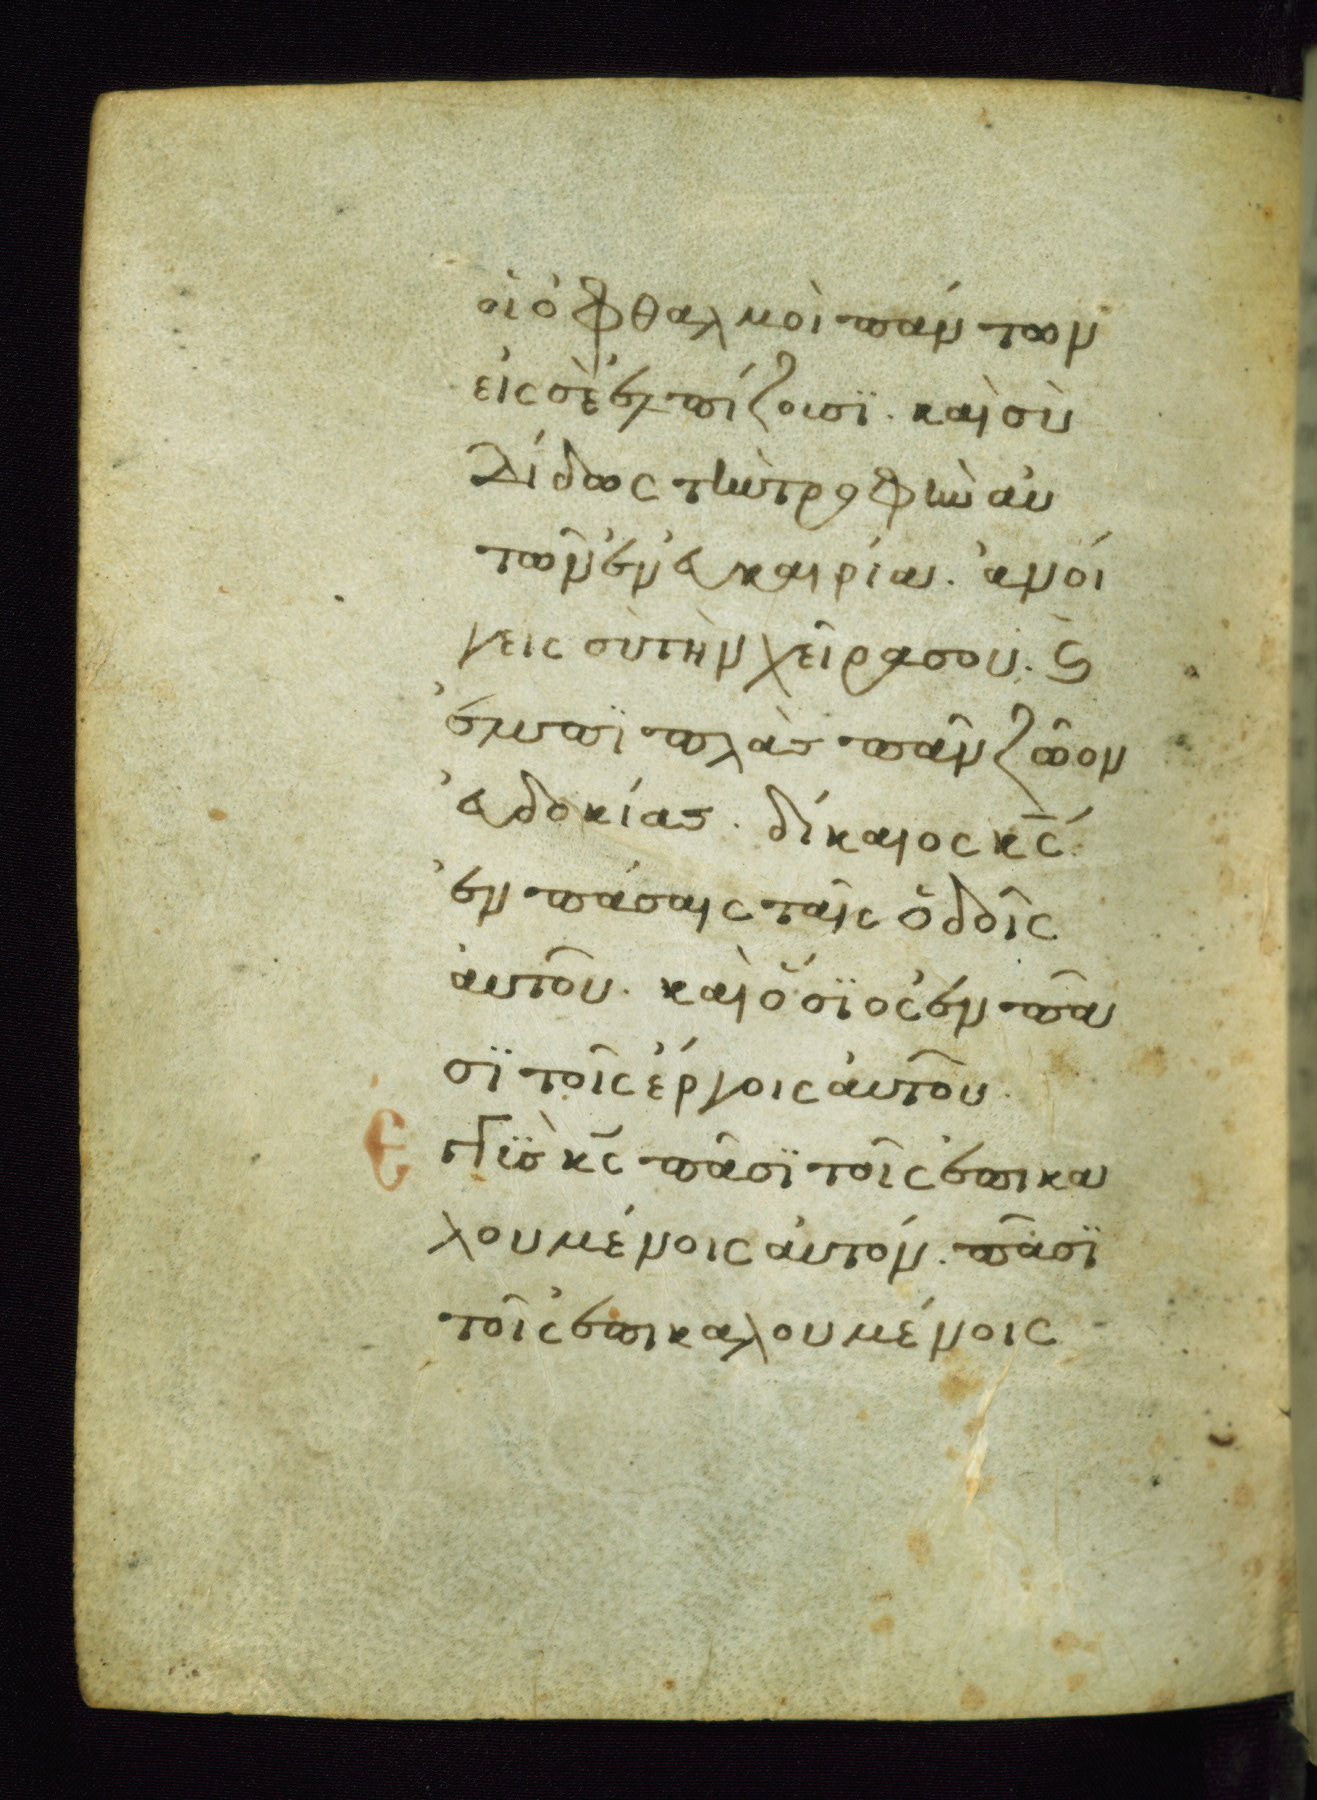 οἱ ὀφθαλμοὶ πάντων
εἰς σὲ ἐλπίζουσϊ. καὶ σὺ
δίδως τὴν τροφὴν αὐ
τῶν ἐν ἐυκαιρία. ἀνοί
γεις σὺ τὴν χεῖρα σου. ϛ̀
ἐμπϊπλὰς πᾶν ζῶον
ἐυδοκίας. δίκαιος κ̅ς̅.
ἐν πάσαις ταῖς ὁδοῖς
ἀυτοῦ. καὶ ὅσϊος ἐν πᾶ
σϊ τοῖς ἔργοις ἀυτοῦ.
Ε γγῒς κ̅ς̅ πᾶσϊ τοῖς ἐπικα
λουμένοις ἀυτόν. πᾶσϊ
τοῖς ἐπικαλουμένοις